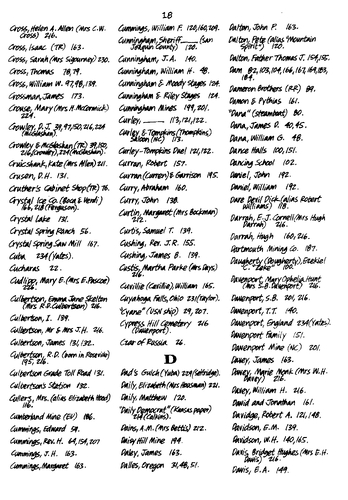 18
Cross, Helen A. Allen (Mrs C.W.
Cross) 216.
Cross, Isaac (TR) 163.
Cross, Sarah (Mrs Sigourney) 230.
Cross, Thomas 78, 79.
Cross, William W. 97, 98, 139.
Crossman, James 173.
Crouse, Mary (Mrs H. McCormick)
224.
Crowley, D.J. 39, 97, 150, 216, 224
(McGlashan).
Crowley & McGlashan (TR) 39, 150,
216 (Crowley), 224 (McGlashan).
Cruickshank, Kate (Mrs Allen) 211.
Crusen, D.H. 131.
Cruther's Cabinet Shop (TR) 76.
Crystal Ice Co. (Boca & Verdi)
166, 218 (Ferguson).
Crystal Lake 131.
Crystal Spring Ranch 56.
Crystal Spring Saw Mill 167.
Cuba 234 (Yates).
Cucharas 22.
Cudlipp, Mary E. (Mrs E. Pascoe)
226.
Culbertson, Emma Jane Skelton
(Mrs R.D. Culbertson) 216.
Culbertson, I. 139.
Culbertson, Mr & Mrs J.H. 216.
Culbertson, James 131, 132.
Culbertson, R.D. (born in Roseville)
195, 216.
Culbertson Grade Toll Road 131.
Culbertson's Station 132.
Cullers, Mrs. (alias Elizabeth Hood)
116.
Cumberland Mine (EU) 186.
Cummings, Edward 59.
Cummings, Rev. H. 64, 154, 207
Cummings, J.H. 163.
Cummings, Margaret 163.
Cummings, William F. 120, 160, 209.
Cunningham, Sheriff (San
Joaquin County) 120.
Cunningham, J.A. 140.
Cunningham, William H. 98.
Cunningham & Moody Stages 124.
Cunningham & Riley Stages 124.
Cunningham Mines 199, 201.
Curley, 113, 121, 122.
Curley & Tompkins (Thompkins)
Saloon (NC) 113.
Curley-Tompkins Duel 121, 122.
Curran, Robert 157.
Curran (Curren) & Garrison 195.
Curry, Abraham 160.
Curry, John 138.
Curtin, Margaret (Mrs Bockman)
212.
Curtis, Samuel T. 139.
Cushing, Rev. J.R. 155.
Cushing, James B. 139.
Custis, Martha Parke (Mrs Days)
216.
Cuville (Cecille), William 165.
Cuyahoga Falls, Ohio 231 (Taylor).
"Cyane" (USN ship) 29, 207.
Cypress Hill Cemetery 216
(Davenport).
Czar of Russia 26.
D
Dad's Gulch (Yuba) 229 (Selridge).
Daily, Elizabeth (Mrs Housman) 221.
Daily, Matthew 120.
"Daily Democrat" (Kansas paper)
214 (Collins).
Dains, A.M. (Mrs Betts) 212.
Daisy Hill Mine 194
Daley, James 163.
Dalles, Oregon 31, 48, 51.
Dalton, John P. 163.
Dalton, Pete (alias "Mountain
Spirit") 120.
Dalton, Father Thomas J. 154, 155.
Dam 82, 103, 104, 166, 167, 169, 183,
184.
Dameron Brothers (RR) 89.
Damon & Pythias 161.
"Dana" (steamboat) 80.
Dana, James D. 40, 45.
Dana, William G. 48.
Dance Halls 100, 151.
Dancing School 102.
Daniel, John 192.
Daniel, William 192.
Dare Devil Dick (alias Robert
Williams) 118.
Darrah, E.J. Cornell (Mrs Hugh
Darrah) 216.
Darrah, Hugh 160, 216.
Dartmouth Mining Co. 187.
Daugherty (Dougherty), Ezekiel
"C. "Zeke" 100.
Davenport, Mary Ophelia Hunt
(Mrs S.B. Davenport) 216.
Davenport, S.B. 201, 216.
Davenport, T.T. 140.
Davenport, England 234 (Yates).
Davenport Family 151.
Davenport Mine (NC) 201.
Davey, James 163.
Davey, Marie Monk (Mrs W.H.
Davey) 216.
Davey, William H. 216.
David and Jonathan 161.
Davidge, Robert A. 121, 148.
Davidson, E.M. 139.
Davidson, W.H. 140, 165.
Davis, Bridget Hughes (Mrs E.H.
Davis) 216.
Davis, E.A. 149.